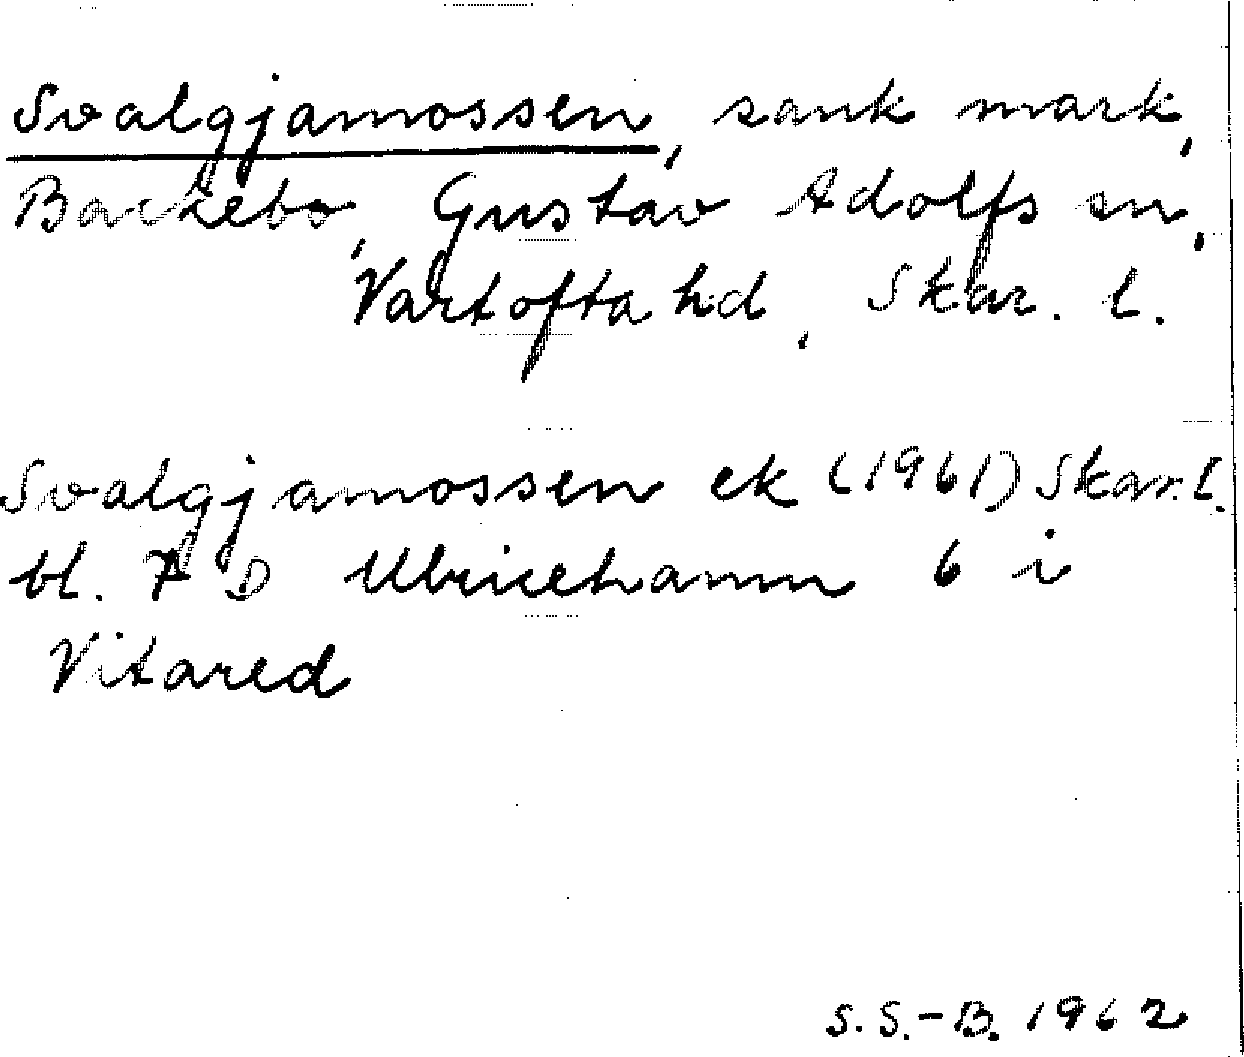 Svalgjamossen, sank mark,
Backebo, Gustav Adolfs sn,
Vartofta hd, Skar. l.
Svalgjamossen ek (1961) Skar. l.
bl. 7 D Ulricehamn 6 i
Vitared
S. S.-B. 1962